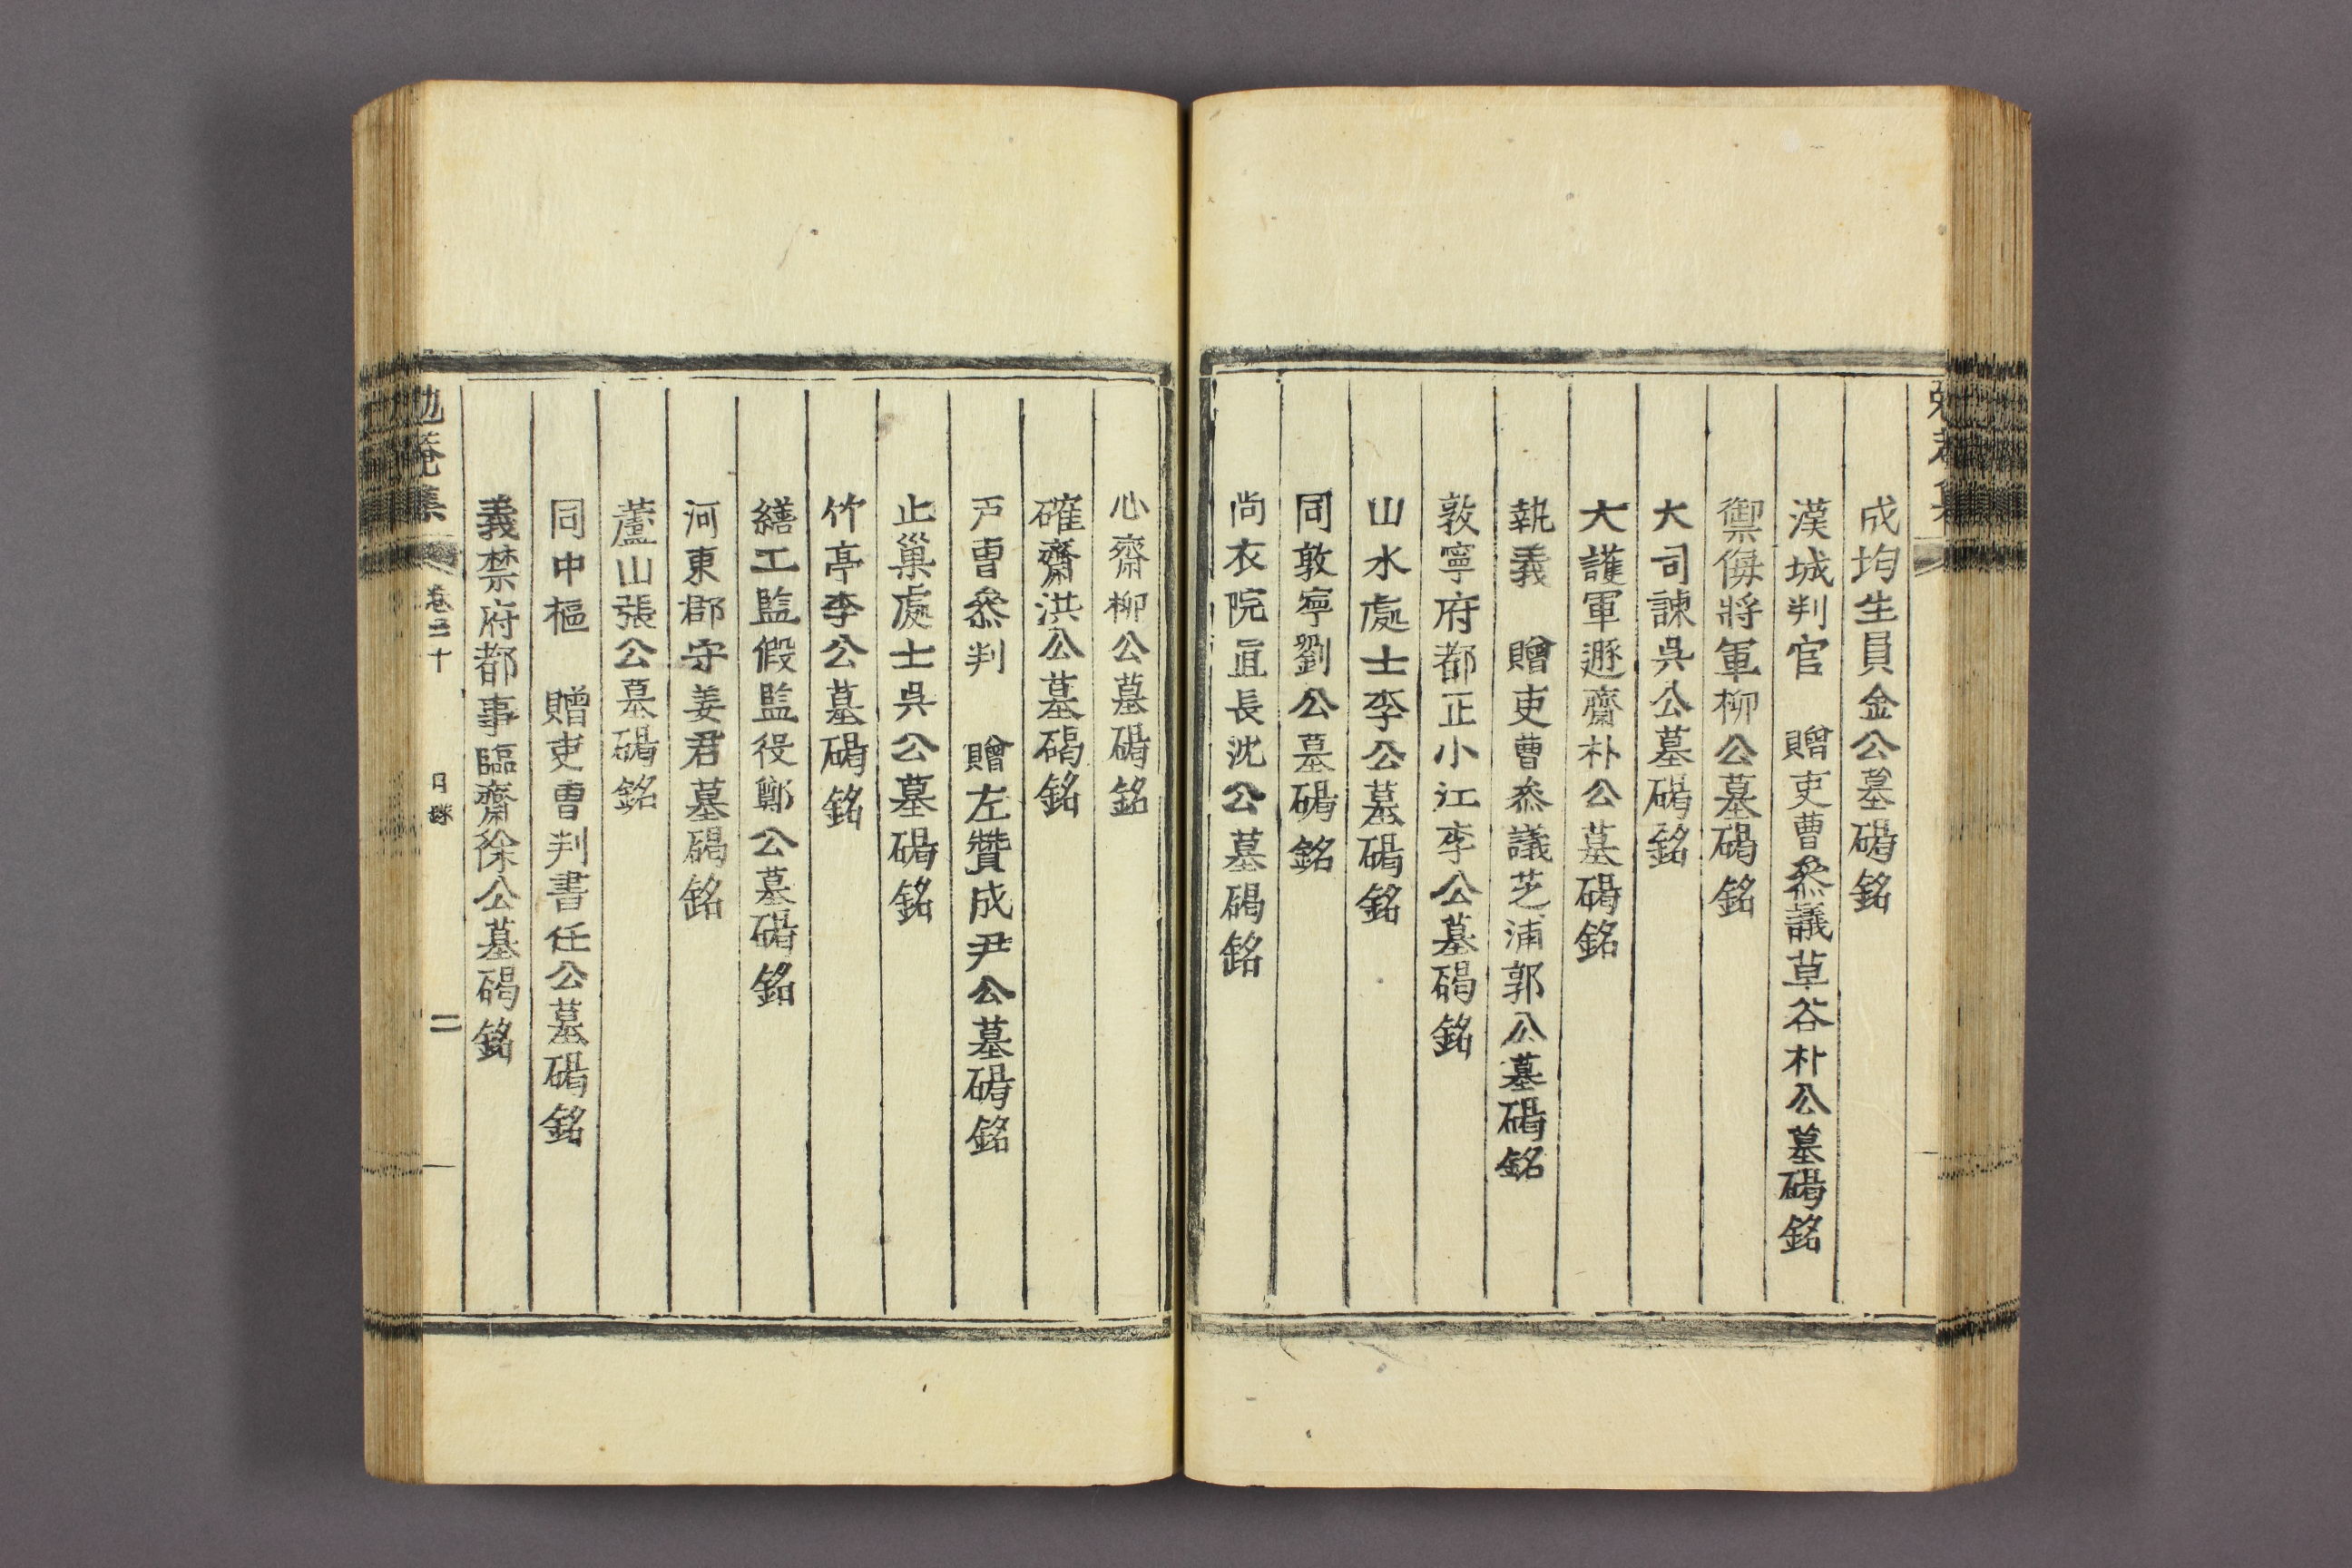 成均生員金公墓碣銘
漢城判官 贈吏曹叅議草谷朴公墓碣銘
禦侮將軍柳公墓碣銘
大司諫吳公墓碣銘
大護軍遯齋朴公墓碣銘
執義 贈吏曹叅議芝浦郭公墓碣銘
敦寧府都正小江李公墓碣銘
山水處士李公墓碣銘
同敦寧劉公墓碣銘
尙衣院直長沈公墓碣銘
心齋柳公墓碣銘
確齋洪公墓碣銘
戶曹叅判 贈左贊成尹公墓碣銘
止巢處士吳公墓碣銘
竹亭李公墓碣銘
繕工監假監役鄭公墓碣銘
河東郡守姜君墓碣銘
蘆山張公墓碣銘
同中樞 贈吏曹判書任公墓碣銘
義禁府都事臨齋徐公墓碣銘
勉菴集 卷三十 目錄 二